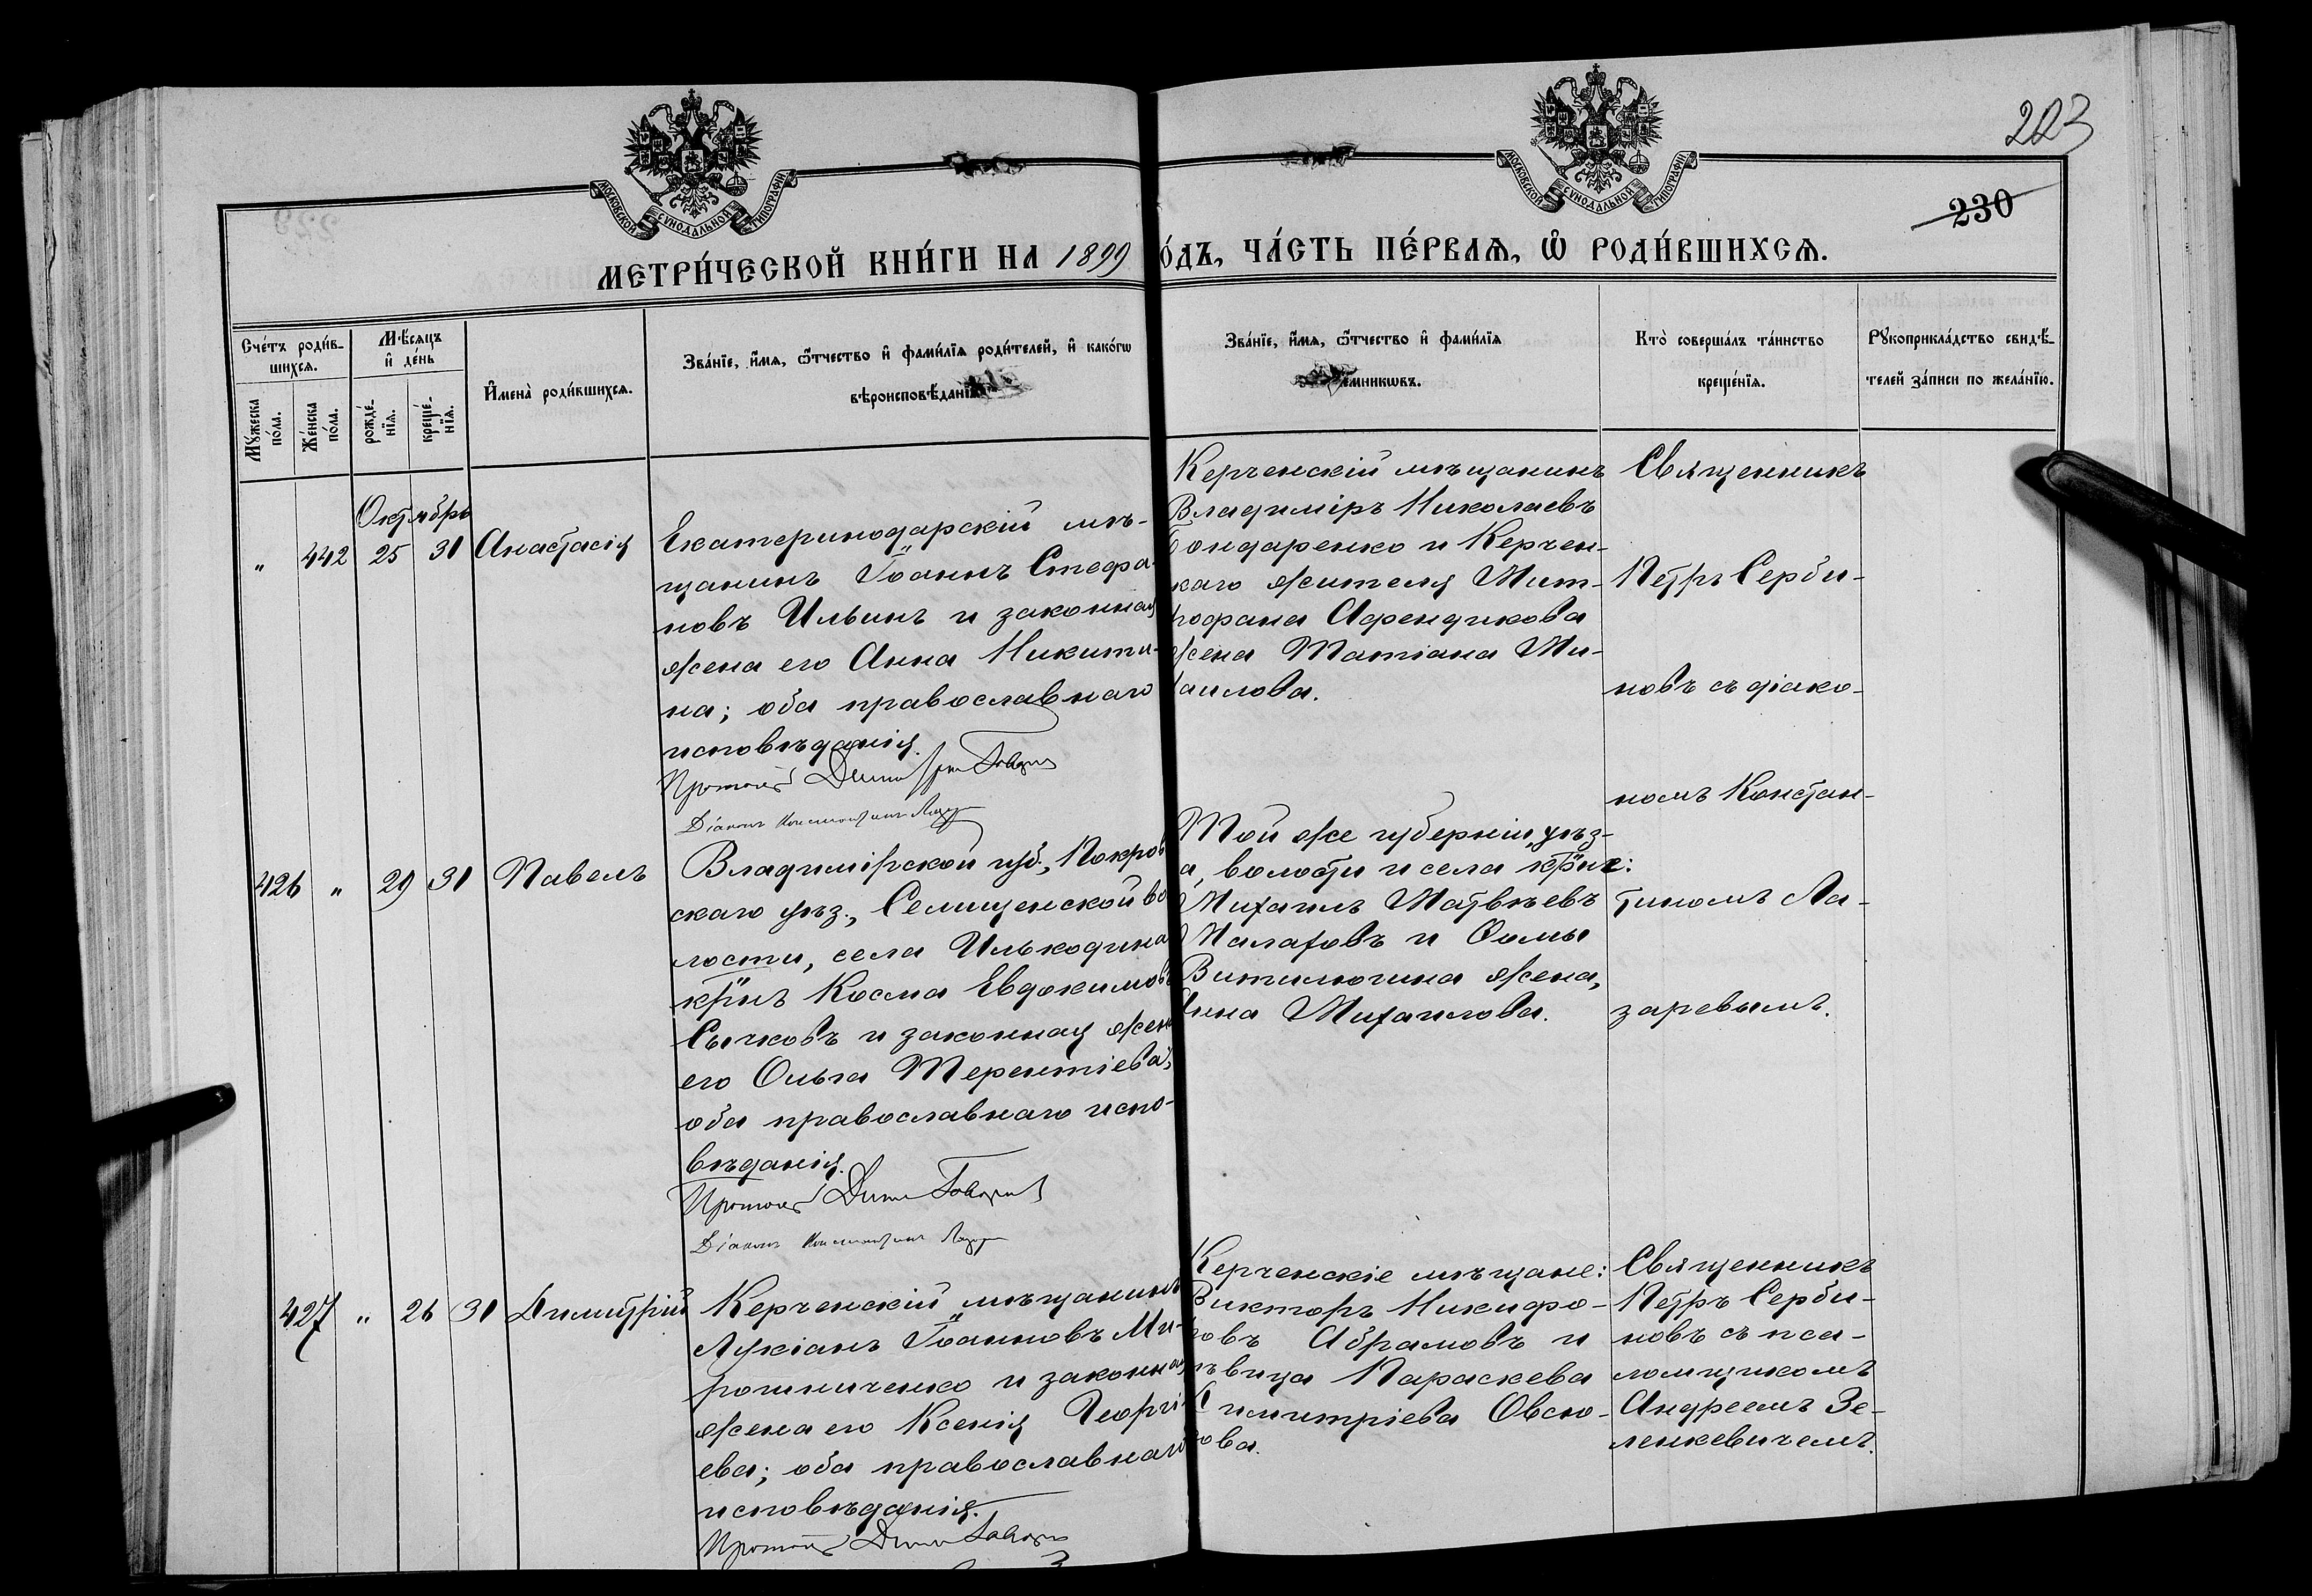 223
230
МОСКОВСКОЙ СѴНОДАЛЬНОЙ ТИПОГРАФІИ
МОСКОВСКОЙ СѴНОДАЛЬНОЙ ТИПОГРАФІИ
МЕТРИ́ЧЕСКОЙ КНИ́ГИ НА 1899 ОДЪ, ЧА́СТЬ ПЕ́РВАѦ, Ѽ РОДИ́ВШИХСѦ.
Сче́тъ роди́в-
шихсѧ.
Мꙋ́жеска по́ла.
Же́нска по́ла.
Мѣ́сѧцъ
и҆ де́нь
рожде́-
нїѧ.
креще́-
нїѧ.
И҆мена̀ роди́вшихсѧ.
Зва́нїе, и҆́мѧ, ѻ҆́тчество и҆ фами́лїѧ роди́телей, и҆ како́гѡ
вѣроисповѣ́данїѧ
Зва́нїе, и҆́мѧ, ѻ҆́тчество и҆ фами́лїѧ
емникѡвъ.
Кто̀ соверша́лъ та́инство
креще́нїѧ.
Рꙋкоприкла́дство свидѣ́-
телей за́писи по жела́нїю.
Октябрь
" 442 25 31 Анастасія
Екатеринодарскій мѣ-
щанинъ Іоаннъ Стефа-
новъ Ильинъ и законная
жена его Анна Никити-
на; оба православнаго
исповѣданія.
Діаконъ Константинъ
Керченскій мѣщанинъ
Владиміръ Николаевъ
Бондаренко и Керчен-
каго жителя Мит-
рофана Афендикова
жена Татіана Ми-
хаилова.
Священникъ
Петръ Серби-
новъ съ діако-
номъ Констан-
тиномъ Ла-
заревымъ.
426 " 29 31 Павелъ
Владимірской губ., Покров
скаго уѣз., Селищенской во
лости, села Илькодина
кр̃нъ Косма Евдокимовъ
Сычковъ и законная жена
его Ольга Терентіева;
оба православнаго испо-
вѣданія.
Діаконъ Константинъ
Той же губерніи, уѣз-
а, волости и села кр̃не:
Михаилъ Матвѣевъ
Малаховъ и Ѳомы
Витилючина жена,
Анна Михаилова.
427 " 26 31 Димитрій
Керченскій мѣщанинъ
Лукіанъ Іоанновъ Ми-
рошниченко и законная
жена его Ксенія Георгі-
ева; оба православнаго
исповѣданія.
Керченскіе мѣщане:
Викторъ Никифо-
ровъ Абрамовъ и
дѣвица Параскева
Димитріева Овсю-
кова.
Священникъ
Петръ Серби-
новъ съ пса-
ломщикомъ
Андреемъ Зе-
ленкевичемъ.